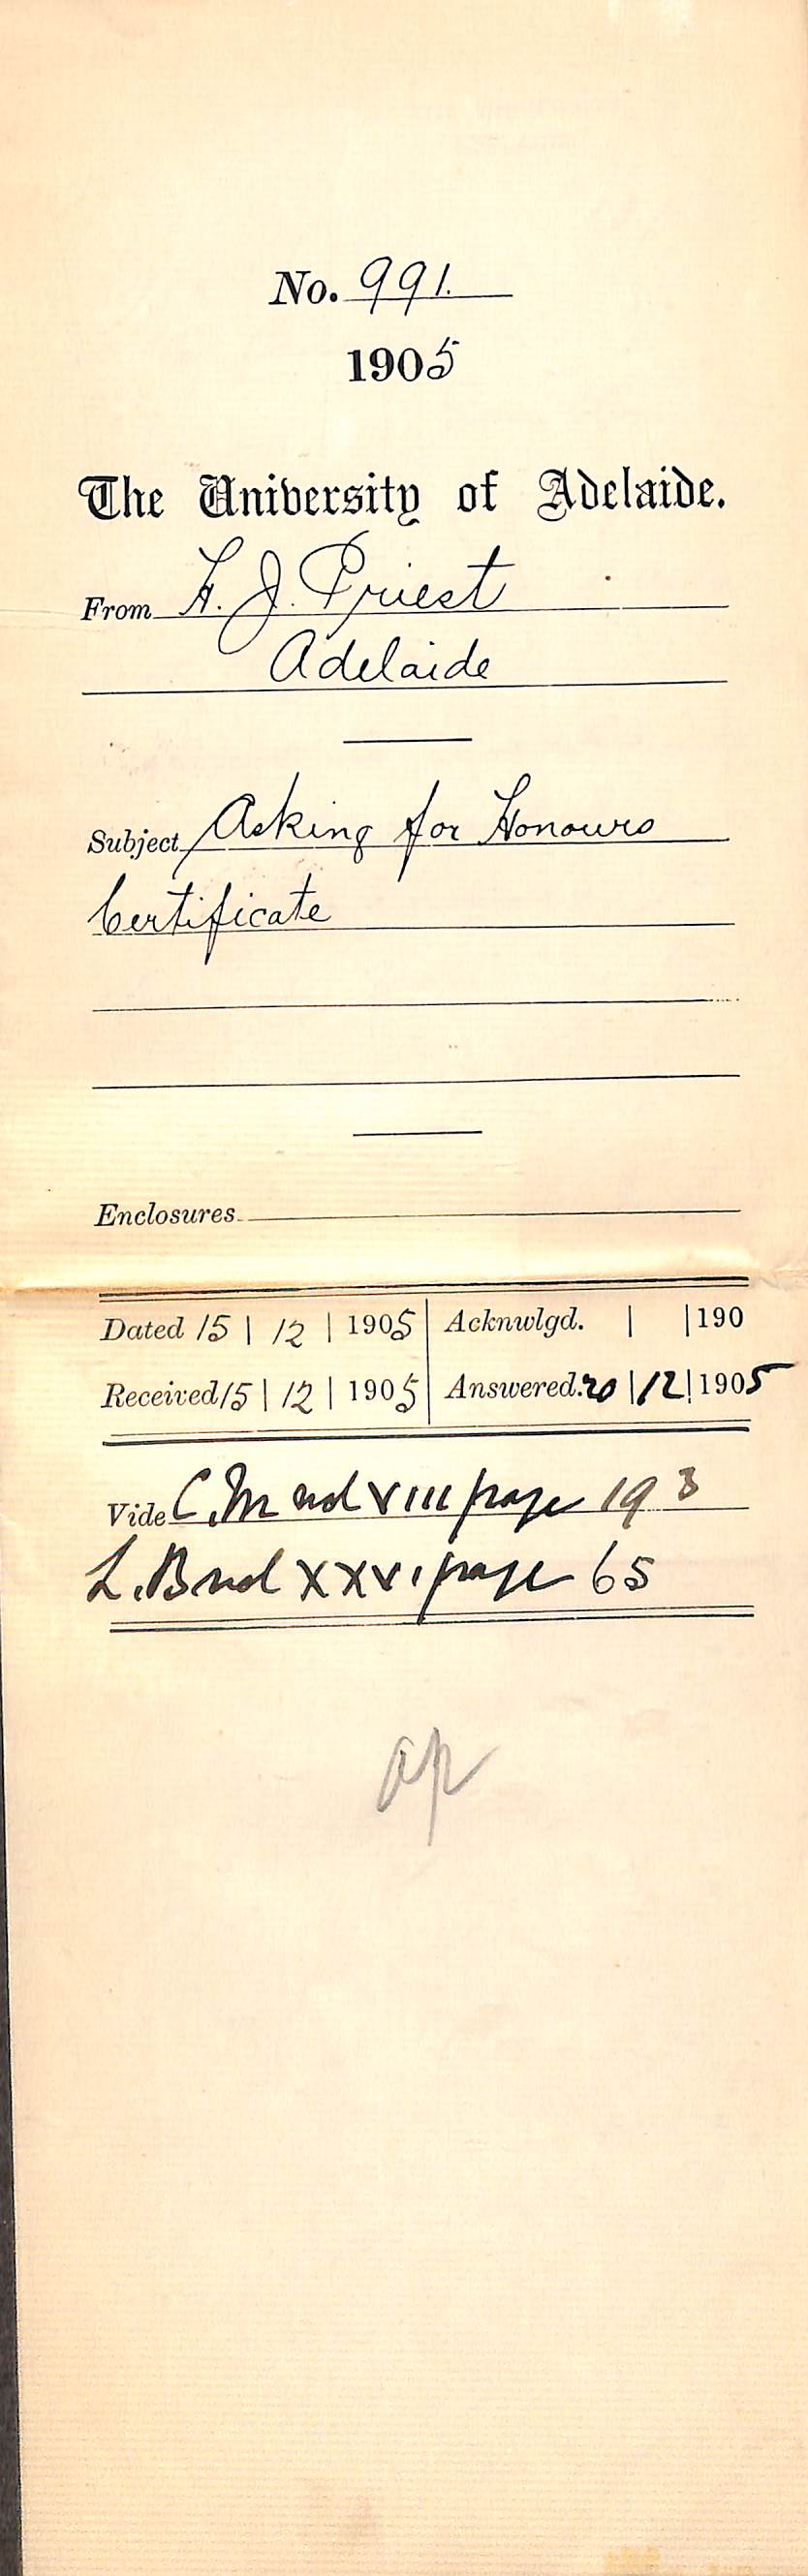 No. 991.
1905
The University of Adelaide.
From H. J. Priest
Adelaide
Subject Asking for Honours
Certificate
Enclosures
Dated 15 | 12 | 1905 Acknwlgd. | | 190
Received 15 | 12 | 1905 Answered. 20 | 12 | 1905
Vide C.M vol VIII page 193
L.B vol XXVI page 65